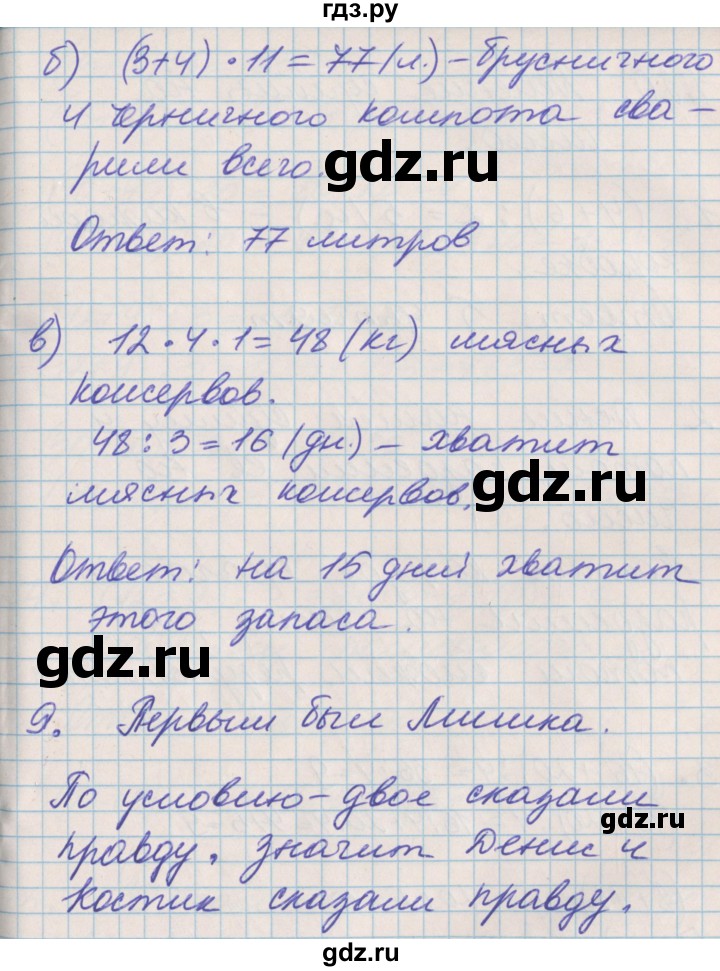 гдз.ру
б) (3+4) • 11 = 77 (л.) – брусничного
и черничного компота сва –
рили всего.
gdz.ru
Ответ: 77 литров
в) 12 • 4 • 1 = 48 (кг) мясных
консервов.
48 : 3 = 16 (дн.) – хватит
gdz.ru
мясных консервов.
Ответ: на 15 дней хватит
этого запаса.
gdz.ru
9. Первым был Мишка.
По условию – двое сказали
gdz.ru
правду, значит Денис и
Костик сказали правду.
gdz.ru